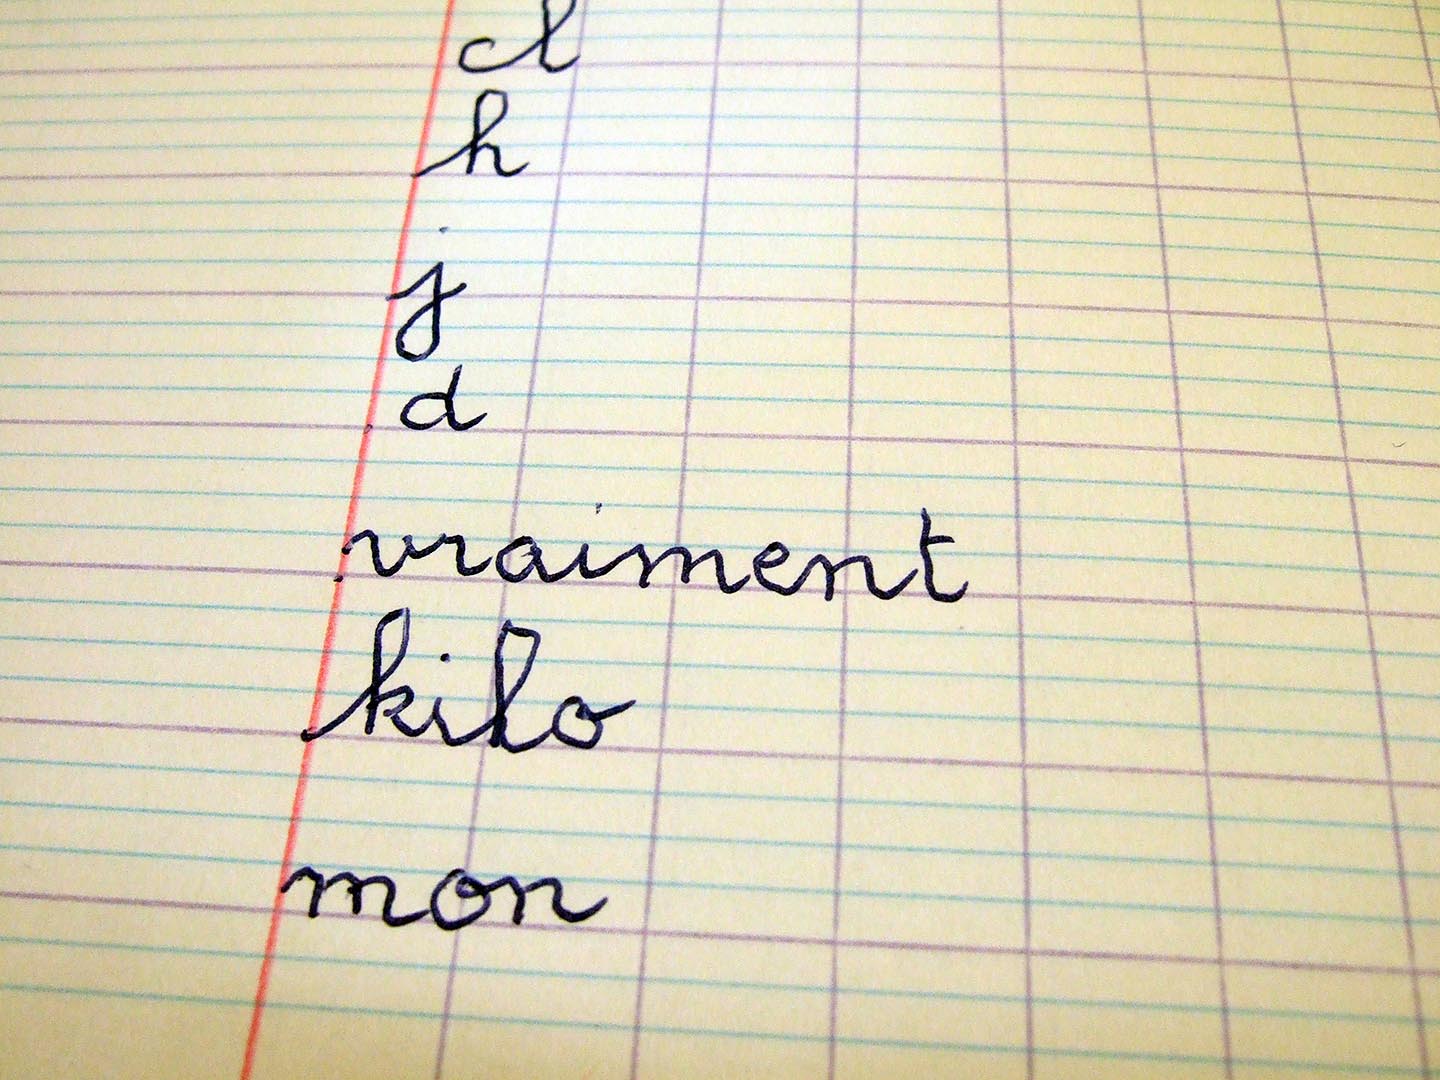 cl
h
j
d
vraiment
kilo
mon